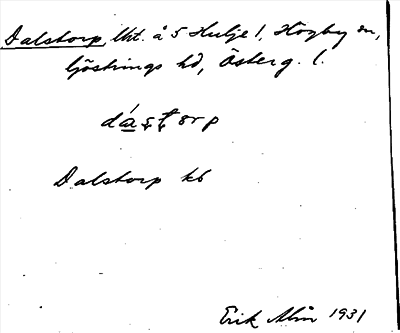 Dalstorp, lht. å S Hulje 1, Högby sn,
Göstrings hd, Österg. l.
dástorp
Dalstorp kb
Erik Alm 1931